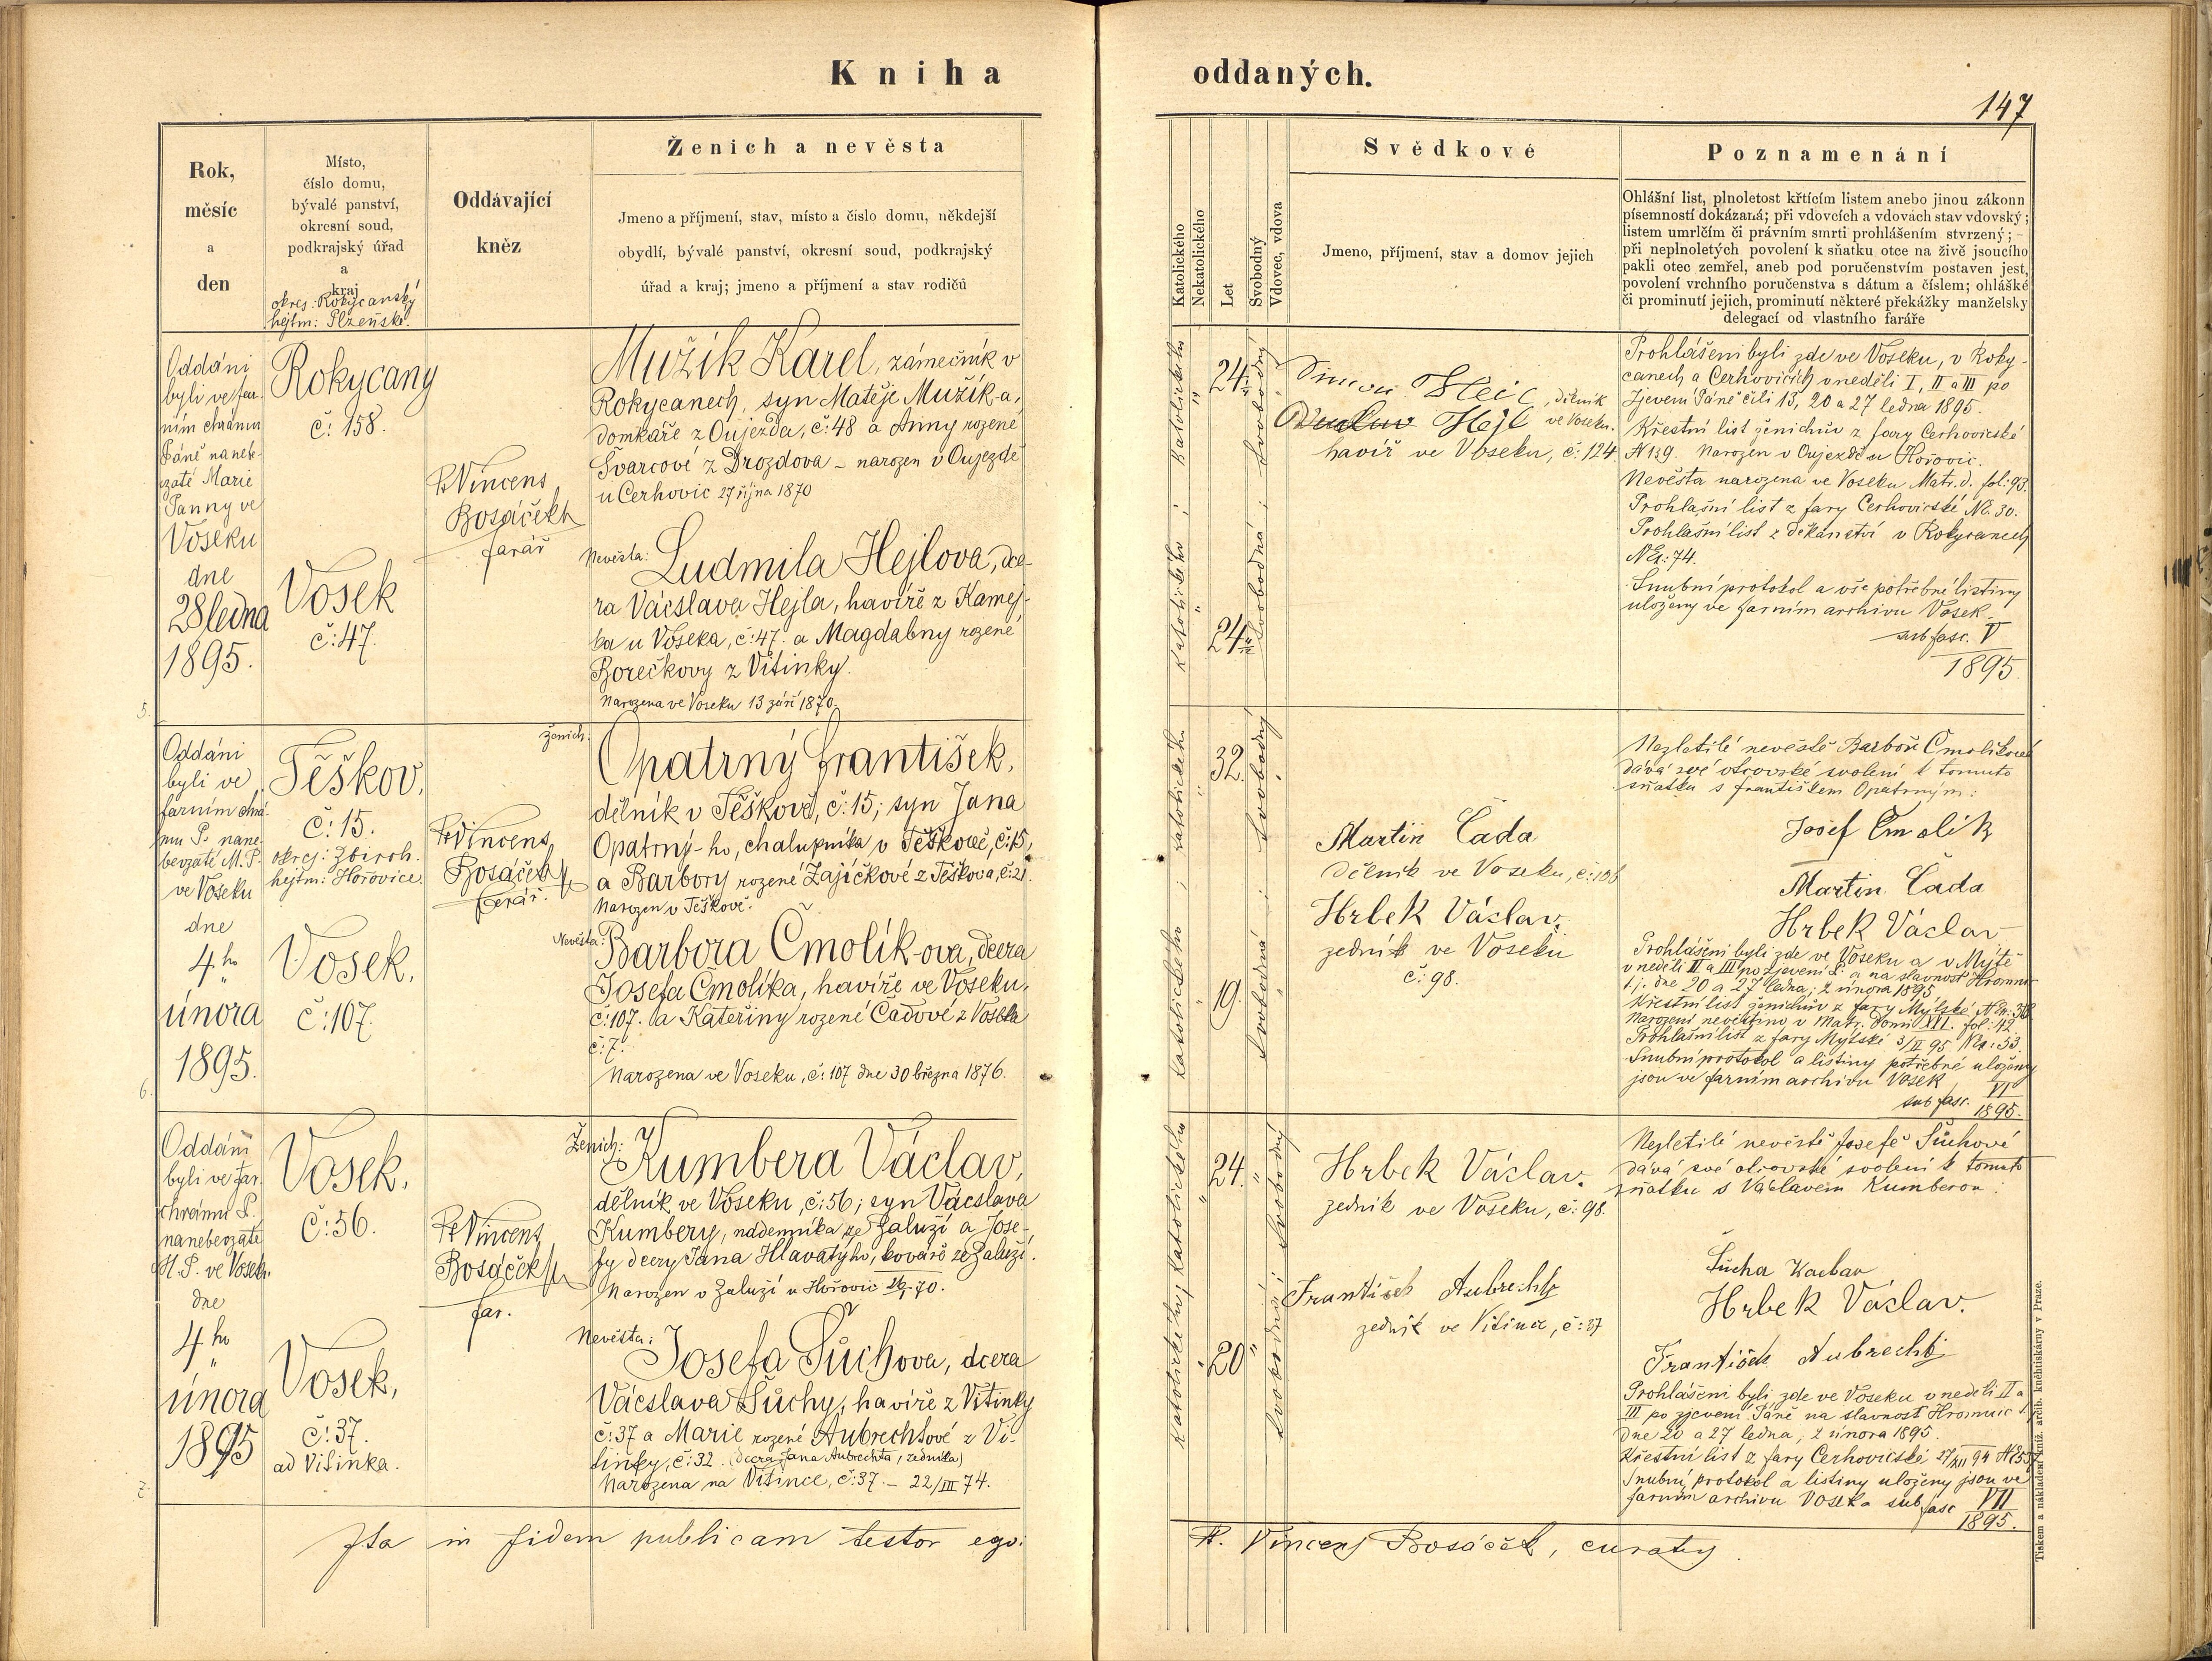 Kniha oddaných.
147
Rok,
měsíc
a
den
Místo,
číslo domu,
bývalé panství,
okresní soud,
podkrajský úřad
a
kraj
okres: Rokycanský
hejtm: Plzeňské.
Oddávající
kněz
Ženich a nevěsta
Jmeno a příjmení, stav, místo a číslo domu, někdejší
obydlí, bývalé panství, okresní soud, podkrajský
úřad a kraj; jmeno a příjmení a stav rodičů
Katolického
Nekatolického
Let
Svobodný
Vdovec, vdova
Svědkové
Jmeno, příjmení, stav a domov jejich
Poznamenání
Ohlášní list, plnoletost křtícím listem anebo jinou zákonn
písemností dokázaná; při vdovcích a vdovách stav vdovský;
listem umrlčím či právním smrti prohlášením stvrzený; –
při neplnoletých povolení k sňatku otce na živě jsoucího
pakli otec zemřel, aneb pod poručenstvím postaven jest,
povolení vrchního poručenstva s dátum a číslem; ohlášké
či prominutí jejich, prominutí některé překážky manželsky
delegací od vlastního faráře
Oddáni
byli ve far-
ním chrámu
Páně nanebe-
vzaté Marie
Panny ve
Voseku
dne
28 ledna
1895.
5.
Rokycany
č: 158.
Vosek
č: 47.
P. Vincens
Bosáček
farář
Mužík Karel, zámečník v
Rokycanech, syn Matěje Mužík-a,
domkáře z Oujezda, č: 48 a Anny rozené
Švarcové z Drozdova – narozen v Oujezdě
u Cerhovic 27 října 1870
Nevěsta: Ludmila Hejlova, dce-
ra Vácslava Hejla, havíře z Kamej-
ka u Voseka, č: 47. a Magdaleny rozené
Borečkovy z Vitinky.
Narozena ve Voseku 13 září 1870.
Katolického
24
Svobodný
Katolického
24
Svobodná
Hejl, dělník
Hejl ve Voseku.
havíř ve Voseku, č: 124.
Prohlášeni byli zde ve Voseku, v Roky-
canech a Cerhovicích v neděli I, II a III po
Zjevení Páně čili 13, 20 a 27 ledna 1895.
Křestní list ženichův z fary Cerhovické
N 139. Narozen v Oujezdě u Hořovic.
Nevěsta narozena ve Voseku Matr. d. fol: 93.
Prohlašní list z fary Cerhovické No. 30.
Prohlašní list z děkanství v Rokycanech
NEx: 74.
Snubní protokol a vše potřebné listiny
uloženy ve farním archivu Vosek
sub fasc. V
1895.
Oddáni
byli ve
farním chrá-
mu P. nane-
bevzaté M. P.
ve Voseku
dne
4ho
února
1895.
6.
Těškov,
č: 15.
okres: Zbiroh.
hejtm: Hořovice.
Vosek,
č: 107.
P. Vincens
Bosáček
farář.
Ženich: Opatrný František,
dělník v Těškově, č: 15; syn Jana
Opatrný-ho, chalupníka v Těškově, č: 15,
a Barbory rozené Zajíčkové z Těškova, č: 21.
Narozen v Těškově.
Nevěsta: Barbora Čmolík-ova, dcera
Josefa Čmolíka, havíře ve Voseku,
č: 107. a Kateřiny rozené Čadové z Voseka
č: 7.
Narozena ve Voseku, č: 107 dne 30 března 1876.
Katolického
32.
Svobodný
Katolického
19.
Svobodná
Martin Čada
dělník ve Voseku, č: 106
Hrbek Václav.
zedník ve Voseku
č: 98.
Nezletilé nevěstě Barboře Čmolíkové
dává své otcovské svolení k tomuto
sňatku s Františkem Opatrným:
Josef Čmolík
Martin Čada
Hrbek Václav
Prohlášeni byli zde ve Voseku a v Mýtě
v neděli II a III po Zjevení P. a na slavnost Hromnic
t. j. dne 20 a 27 ledna; 2 února 1895
Křestní list ženichův z fary Mýtské
Narození nevěstino v Matr. Tomi XVI. fol: 42.
Prohlašní list z fary Mýtské 3/II 95 NEx: 53.
Snubní protokol a listiny potřebné uloženy
jsou ve farním archivu Vosek
sub fasc. VI
1895.
Oddáni
byli ve far.
chrámu P.
nanebevzaté
M. P. ve Voseku.
dne
4ho
února
1895
7.
Vosek,
č: 56.
Vosek,
č: 37.
ad Vitinka.
P. Vincens
Bosáček
far.
Ženich: Kumbera Václav,
dělník ve Voseku, č: 56; syn Vácslava
Kumbery, nádenníka ze Zaluží a Jose-
fy dcery Jana Hlavatýho, kováře ze Zaluží.
Narozen v Zaluží u Hořovic 70.
Nevěsta: Josefa Šůchova, dcera
Vácslava Šůchy, havíře z Vitinky
č: 37 a Marie rozené Aubrechtové z Vi-
tinky, č: 32. (dcera Jana Aubrechta, zedníka)
Narozena na Vitince, č: 37. – 22/III 74.
Katolického
24.
Svobodný
Katolického
20
Svobodná
Hrbek Václav.
zedník ve Voseku, č: 98.
František Aubrecht
zedník ve Vitince, č: 37
Nezletilé nevěstě Josefě Šůchové
dává své otcovské svolení k tomuto
sňatku s Václavem Kumberou:
Šůcha Václav
Hrbek Václav.
František Aubrecht
Prohlášeni byli zde ve Voseku v neděli II a
III po zjevení Páně na slavnost Hromnic t. j.
dne 20 a 27 ledna; 2 února 1895.
Křestní list z fary Cerhovické 27/XII 94
Snubní protokol a listiny uloženy jsou ve
farním archivu Voseka sub fasc VII
1895.
Ita in fidem publicam testor ego:
P. Vincenz Bosáček, curatus.
Tiskem a nákladem kníž. arcib. kněhtiskárny v Praze.